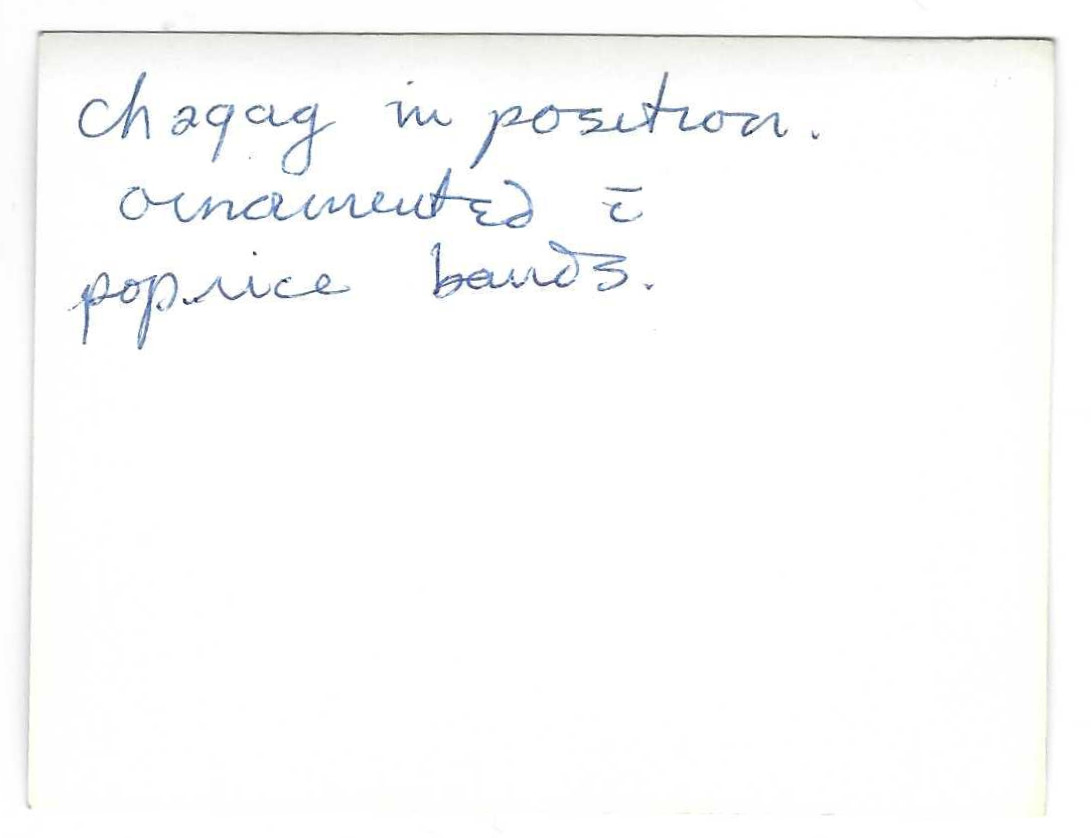 chaqag in position.
ornamented c̄
poprice bands.